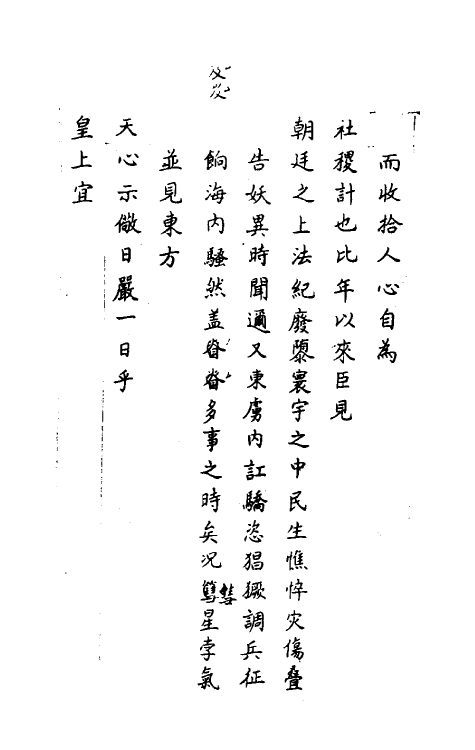 而收拾人心自為
社稷計也比年以來臣見
朝廷之上法紀廢隳寰宇之中民生憔悴灾傷叠
告妖異時聞邇又東虜内訌驕恣猖獗調兵征
餉海内騷然盖昝昝多事之時矣况彗星孛氣
並見東方
天心示儆日嚴一日乎
皇上宜
岌岌